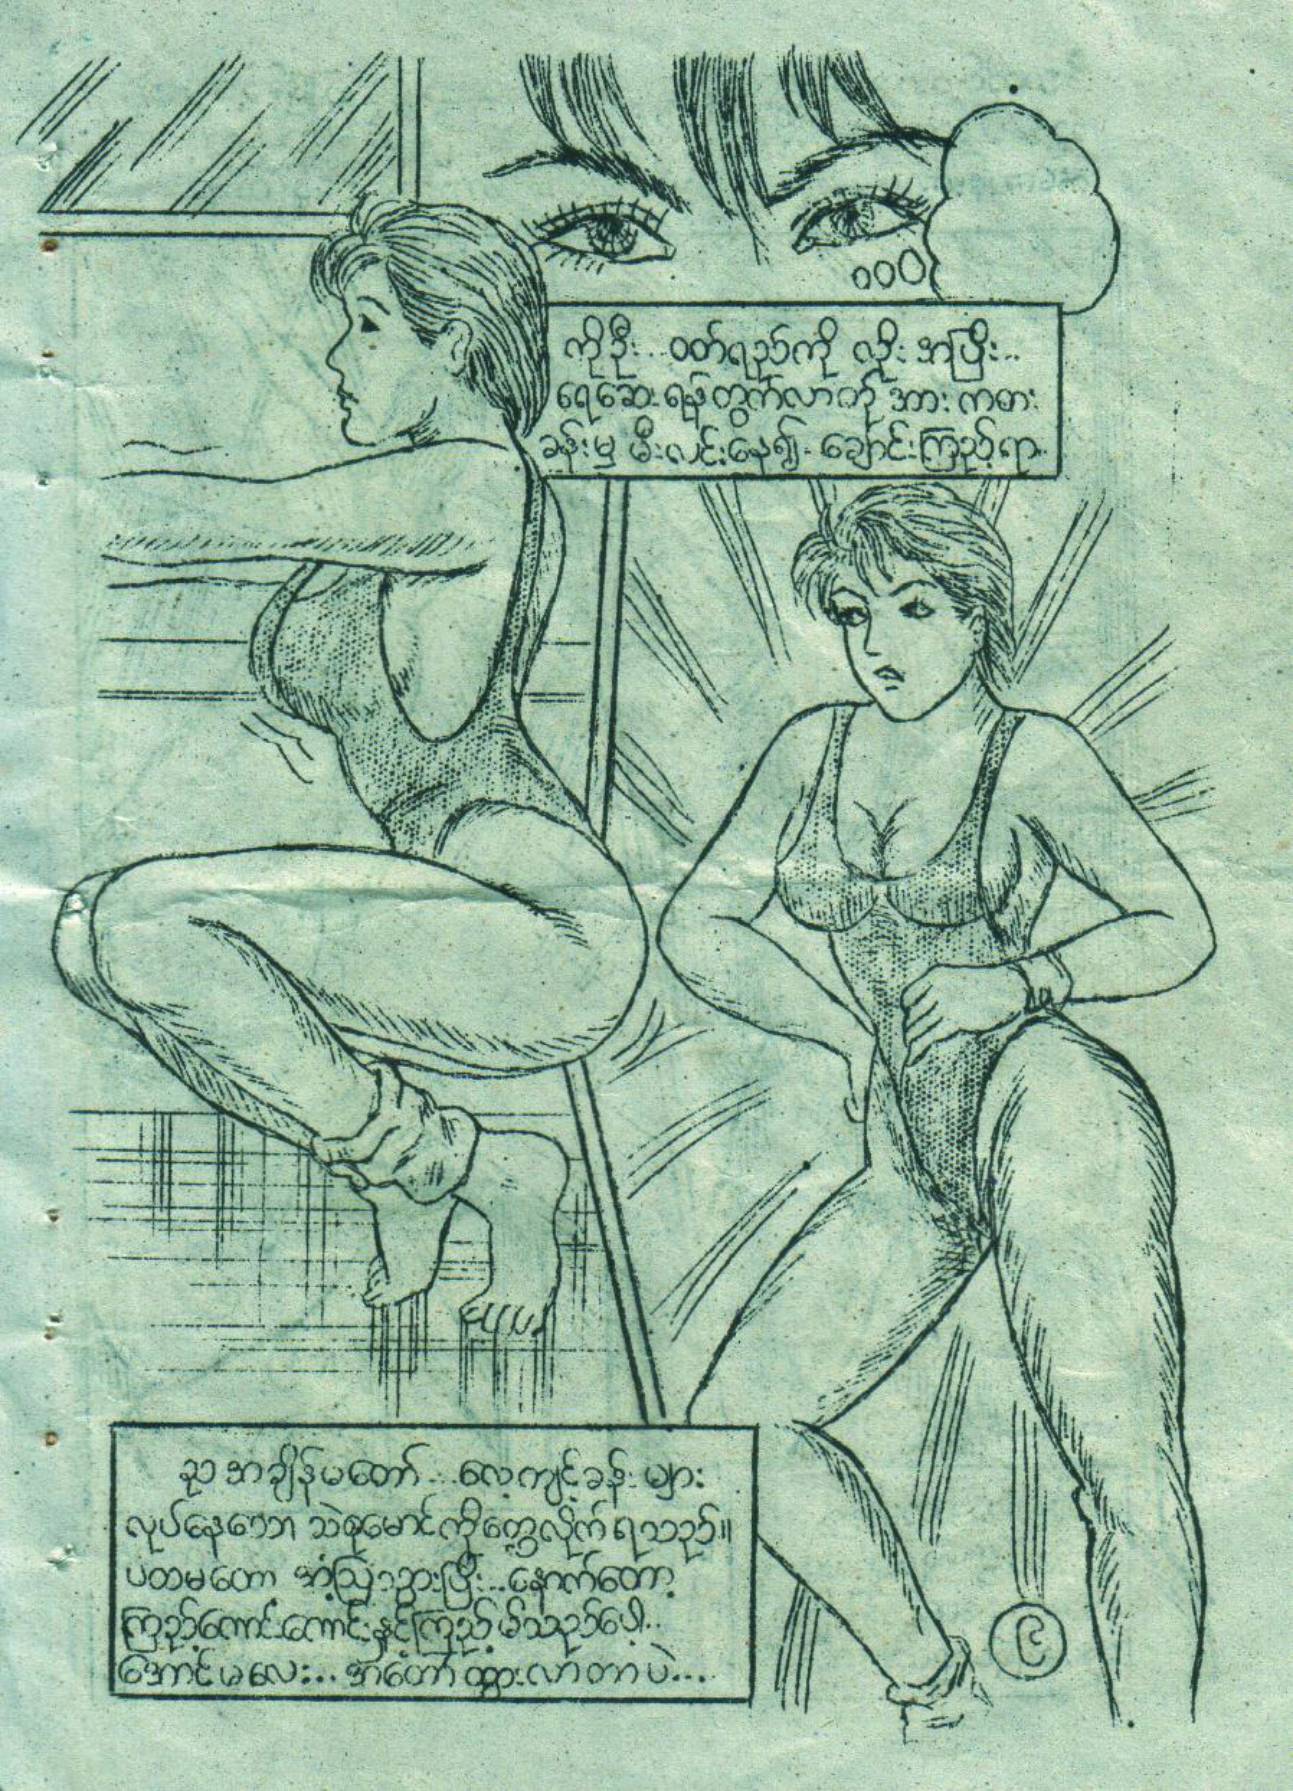 ကိုဦး... ဝတ်ရည်ကို လိုး အပြီး..
ရေဆေး ရန် ထွက်လာကို အား ကစား
ခန်းမှ မီးလင်းနေ၍. ချောင်းကြည့်ရာ.
ည အချိန်မတော်... လေ့ကျင့်ခန်း များ
လုပ်နေသော သဲစုမောင်ကိုတွေ့လိုက် ရသည်။
ပထမတော့ အံ့သြသွားပြီး...နောက်တော့
ကြည့်ကောင်းကောင်းနှင့်ကြည့်မိသည်ပေါ့..
အောင်မလေး... အတော် ထွားလာတာပဲ...
၉